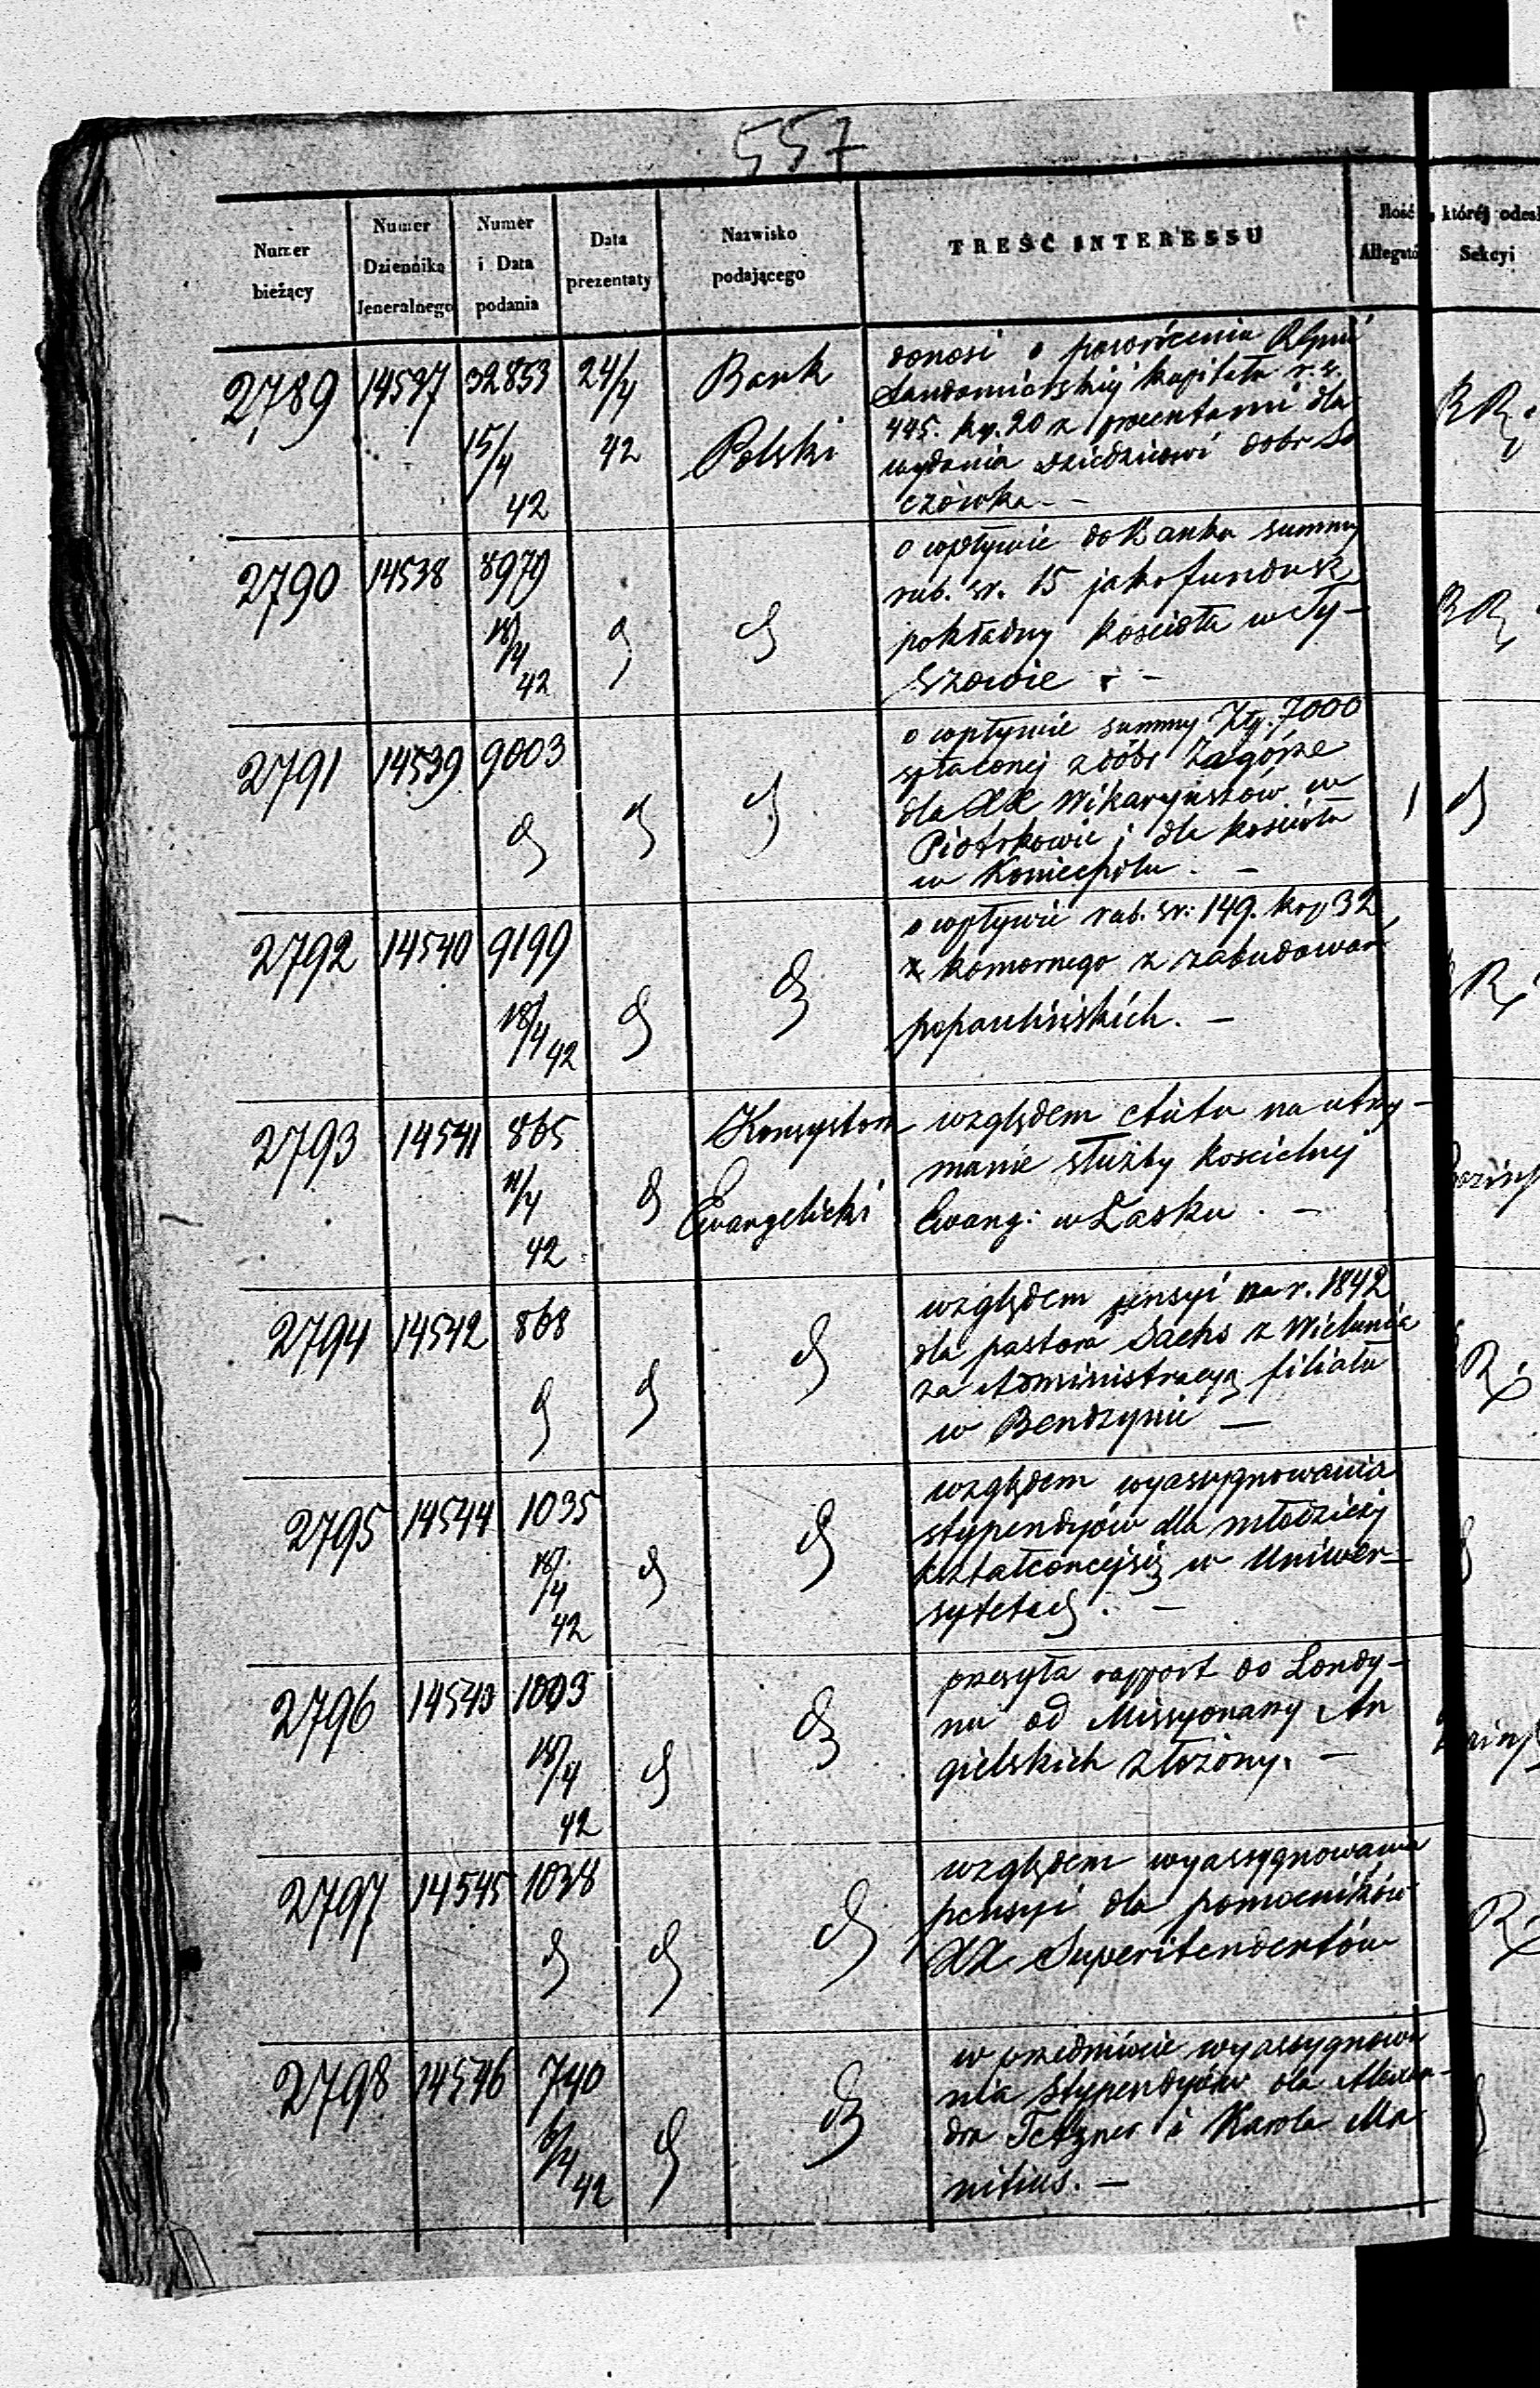 557
Numer bieżący
Numer Dziennika Jeneralnego
Numer i Data podania
Data prezentaty
Nazwisko podającego
TREŚĆ INTERESSU
Ilość Allegató
której odesł
Sekcyi
2789 14537 32853 24/4 Bank donosi o powróceniu
Sandomirskiej kapitału r. s.
15/4 42 Polski 445. kp. 20 z procentami dla
wydania dziedzicowi dobr
42 czówka. -
2790 14538 8979 o wpływie do Banku summy
rub. sr. 15 jako fundusz
18/4 d d pokładny kościoła w Ty-
42 szowie. -
2791 14539 9003 o wpływie summy Złp. 7000
spłaconej z dóbr Zagórze
d d d dla XX Wikaryuszów w 1 d
Piotrkowie i dla kościoła
w Koniecpolu. -
2792 14540 9199 o wpływie rub. sr: 149. kop 32
d z komornego z zabudowań
18/4 42 d popaulińskich. -
2793 14541 865 Konsystorz względem etatu na utrzy-
11/4 d manie służby kościelnej
42 Ewangelicki Ewang: w Łasku. -
2794 14542 868 względem pensyi na r. 1842
d dla pastora Sachs z Wielunia
d d za Administracyą filiału
w Bendzynie -
2795 14544 1035 względem wyassygnowania
d stypendyów dla młodzieży
18/4 d kształconcejsię w Uniwer-
42 sytetach. -
2796 14543 1003 przesyła rapport do Londy-
d nu od Missyonarzy An
18/4 d gielskich złożony. -
42
2797 14545 1038 względem wyassygnowania
d pensyi dla pomocników
d d XX Superitendentów
2798 14546 740 w przedmiocie wyassygnowa
d nia stypendyów dla Alexan-
6/4 d dra Tetzner i Karola Ma
42 nitius. -